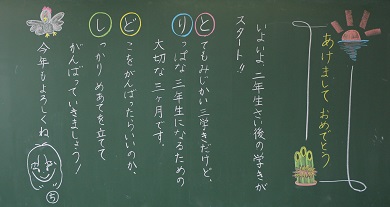 あけまして おめでとう
いよいよ 二年生さい後の学きが
スタート!!
とてもみじかい三学きだけど、
りっぱな 三年生になるための
大切な 三ヶ月です。
どこをがんばったらいいのか、
しっかり めあてを立てて
がんばっていきましょう!
今年もよろしくね。
ち